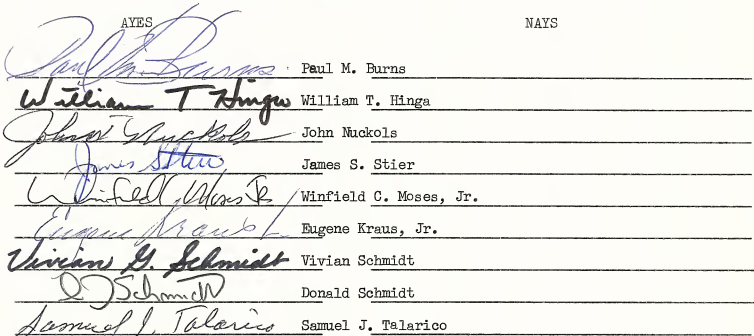 AYES NAYS
Paul M. Burns Paul M. Burns
William T Hinga William T. Hinga
John Nuckols John Nuckols
James Stier James S. Stier
Winfield C. Moses Jr Winfield C. Moses, Jr.
Eugene Kraus Jr Eugene Kraus, Jr.
Vivian G. Schmidt Vivian Schmidt
D J Schmidt Donald Schmidt
Samuel J. Talarico Samuel J. Talarico